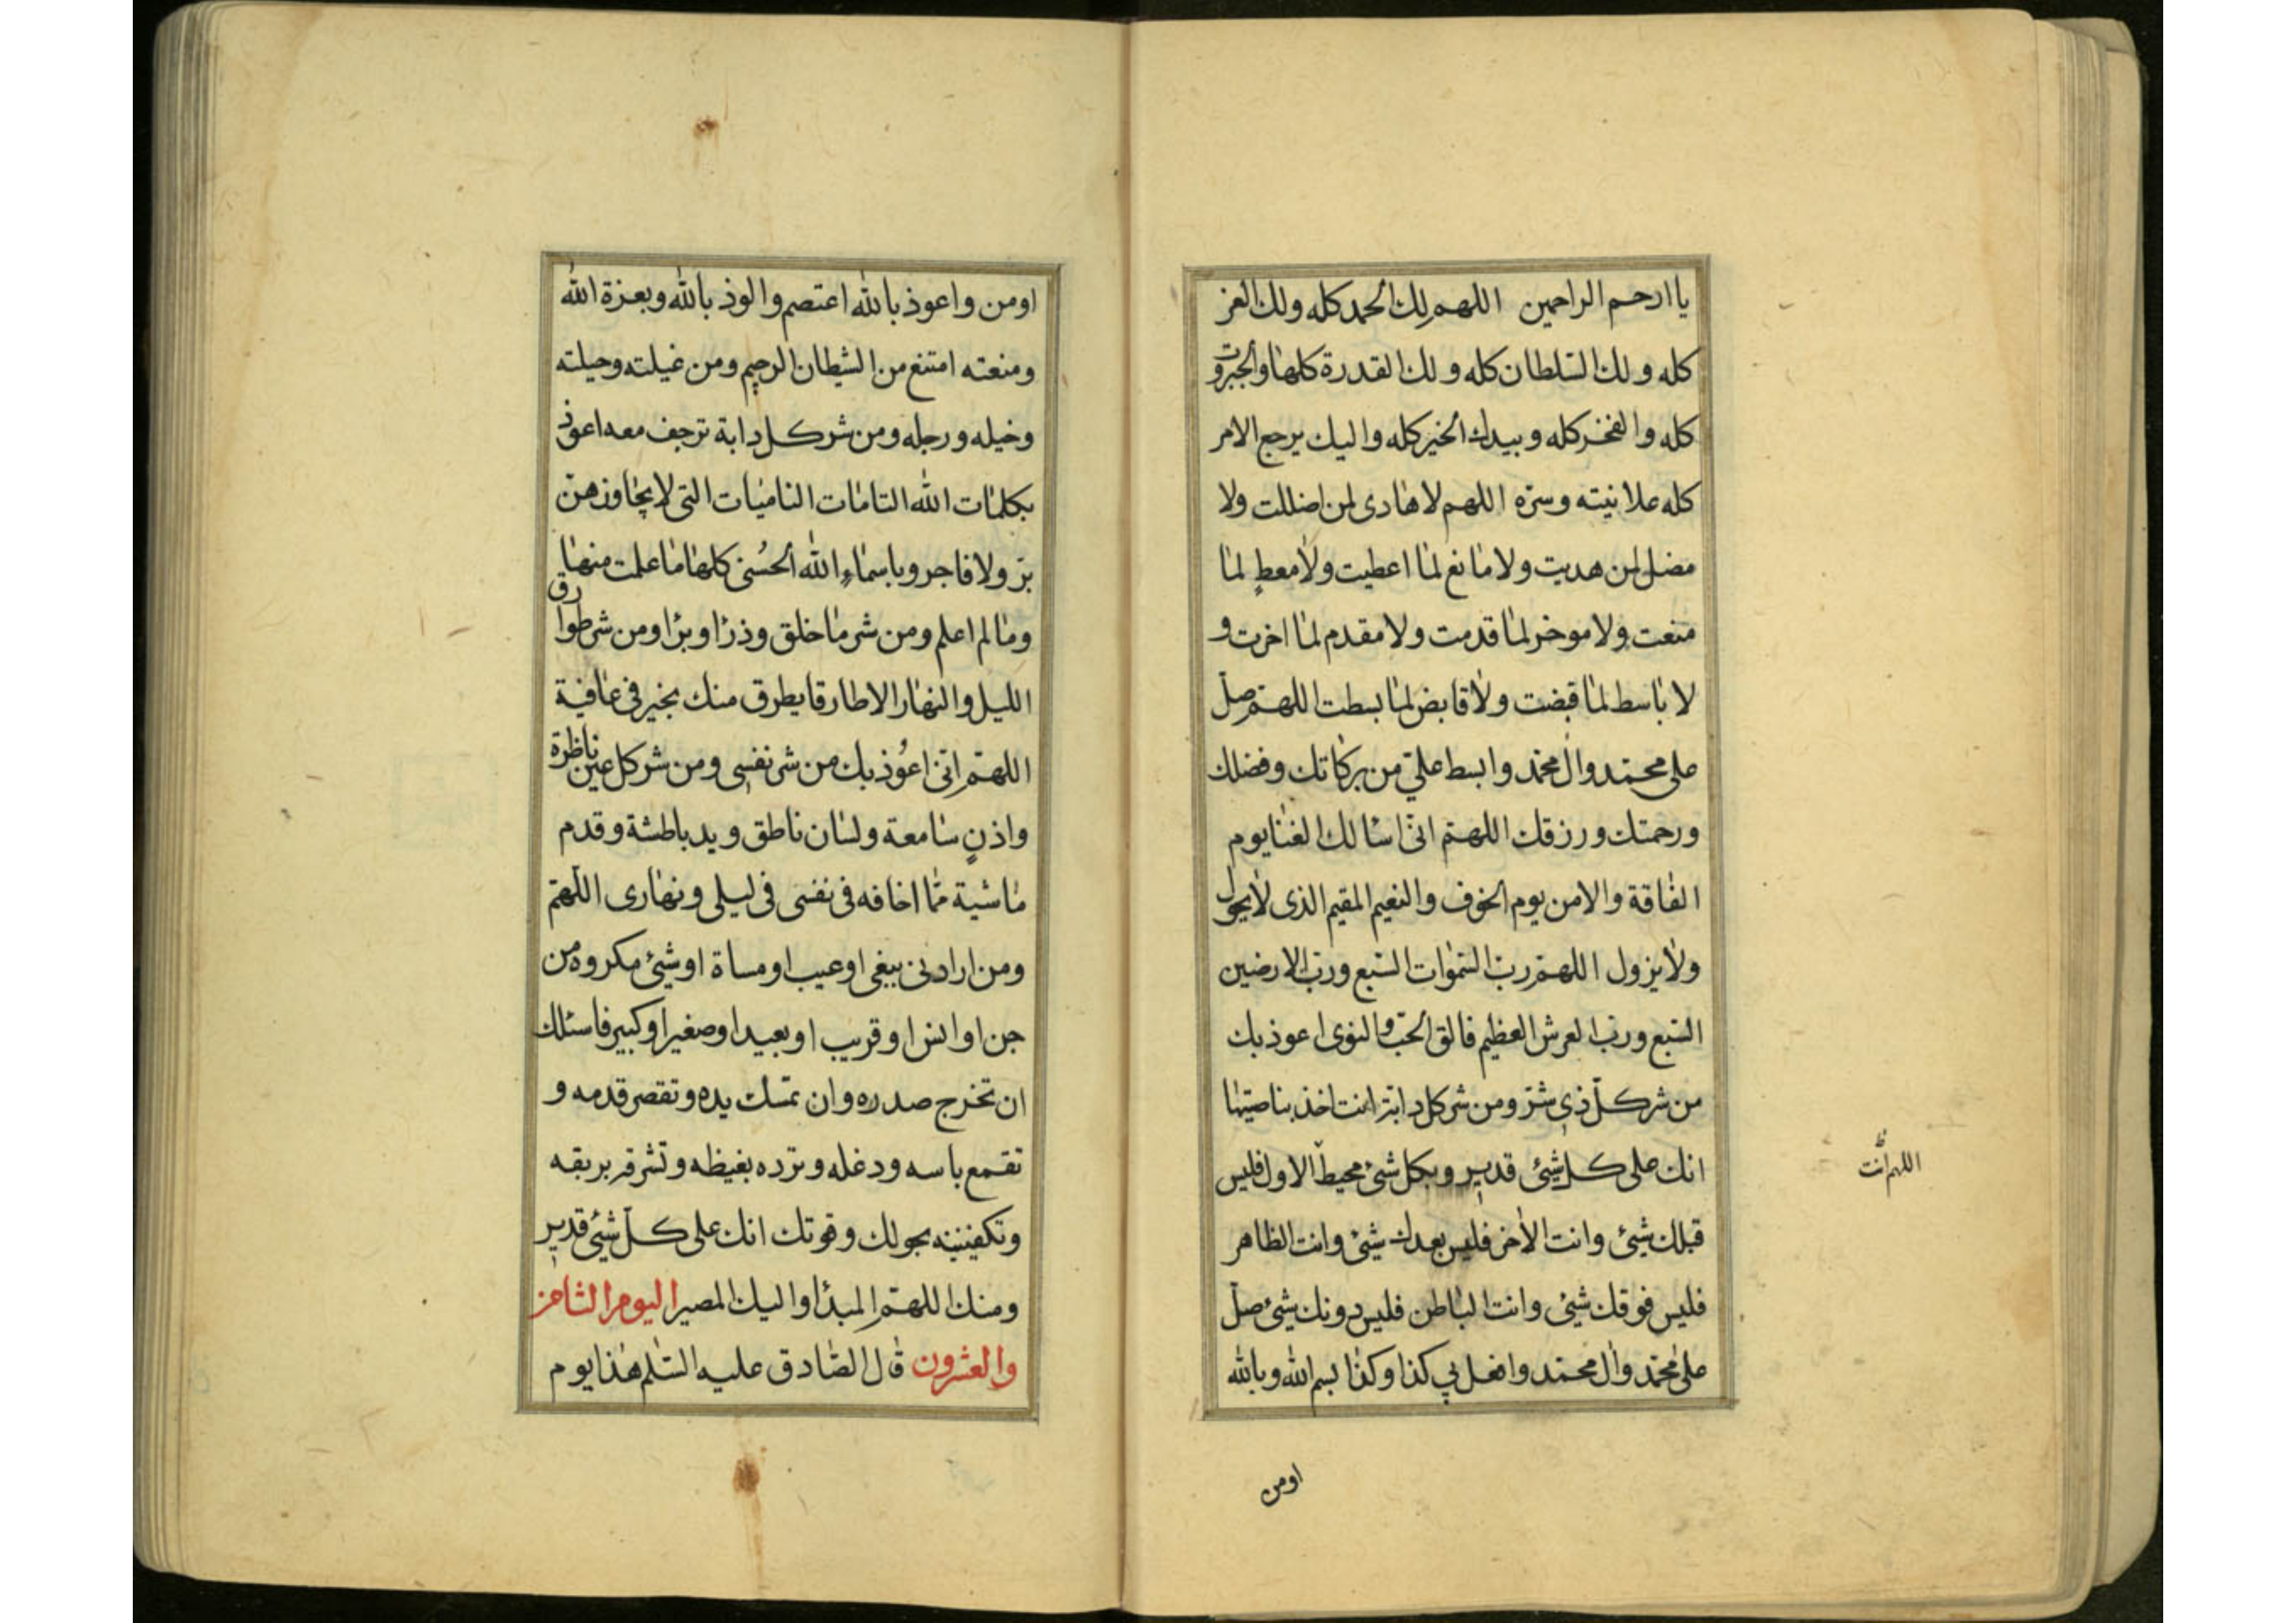 يا ارحم الراحمين اللهم لك الحمد كله ولك العز
كله ولك السلطان كله ولك القدرة كلها والجبروت
كله والفخر كله وبيدك الخير كله واليك يرجع الامر
كله علانيته وسره اللهم لا هادى لمن اضللت ولا
مضل لمن هديت ولا مانع لما اعطيت ولا معطٍ لما
منعت ولا موخر لما قدمت ولا مقدم لما اخرت و
لا باسط لما قبضت ولا قابض لما بسطت اللهم صل
على محمد وال محمد وابسط علي من بركاتك وفضلك
ورحمتك ورزقك اللهم انى اسالك الغنا يوم
الفاقة والامن يوم الخوف والنعيم المقيم الذى لا يحول
ولا يزول اللهم رب السموات السبع ورب الارضين
السبع ورب العرش العظيم فالق الحب والنوى اعوذ بك
من شر كل ذى شر ومن شر كل دابة انت اخذ بناصيتها
انك على كل شئ قدير وبكل شئ محيط الاول فليس
اللهم انت
قبلك شئ وانت الاخر فليس بعدك شئ وانت الظاهر
فليس فوقك شئ وانت الباطن فليس دونك شئ صل
على محمد وال محمد وافعل بي كذا وكذا بسم الله وبالله
اومن
اومن واعوذ بالله اعتصم والوذ بالله وبعزة الله
ومنعته امتنع من الشيطان الرجيم ومن غيلته وحيلته
وخيله ورجله ومن شر كل دابة ترجف معه اعوذ
بكلمات الله التامات الناميات التى لا يجاوزهن
بر ولا فاجر وباسماءِ الله الحُسنى كلها ما علمت منها
وما لم اعلم ومن شر ما خلق وذرا وبرا ومن شر طوارق
الليل والنهار الا طارقا يطرق منك بخير فى عافية
اللهم انى اعُوذ بك من شر نفسى ومن شر كل عين ناظرة
واذنٍ سامعة ولسان ناطق ويد باطشة وقدم
ماشية مما اخافه فى نفسى فى ليلى ونهارى اللهم
ومن ارادنى ببغى او عيب او مساة او شئ مكروه من
جن او انس او قريب او بعيد او صغير او كبير فاسئلك
ان تخرج صدره وان تمسك يده وتقصر قدمه و
تقمع باسه ودغله وترده بغيظه وتشرقه بريقه
وتكفينيه بحولك وقوتك انك على كل شئ قدير
ومنك اللهم المبدأ واليك المصير اليوم الثامن
والعشرون قال الصادق عليه السلم هذا يوم